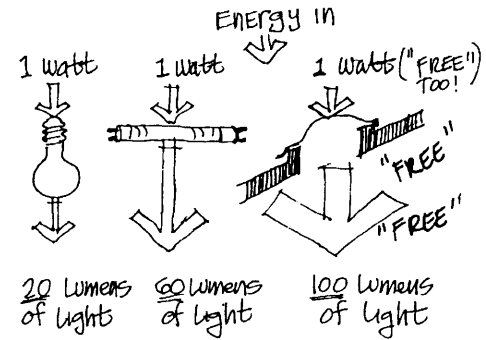 ENERGY IN
1 Watt
1 Watt
1 Watt ("FREE" TOO!)
"FREE"
"FREE"
20 Lumens of Light
60 Lumens of Light
100 Lumens of Light